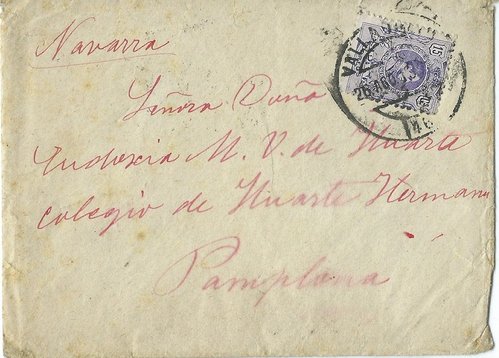 Navarra
Señora Doña
Eudoxia M. V. de Huarte
colegio de Huarte Herman
Pamplona
VALLADOLID
26 AGO
15
15